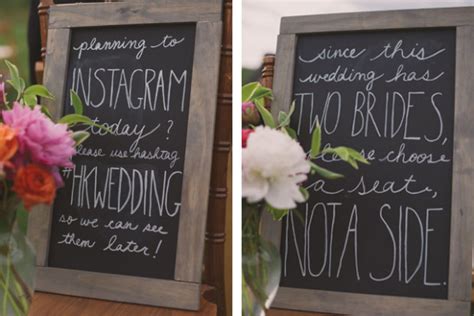 planning to
INSTAGRAM
today?
please use hashtag
#HKWEDDING
so we can see
them later!
since this
wedding has
TWO BRIDES,
please choose
a seat,
NOT A SIDE.